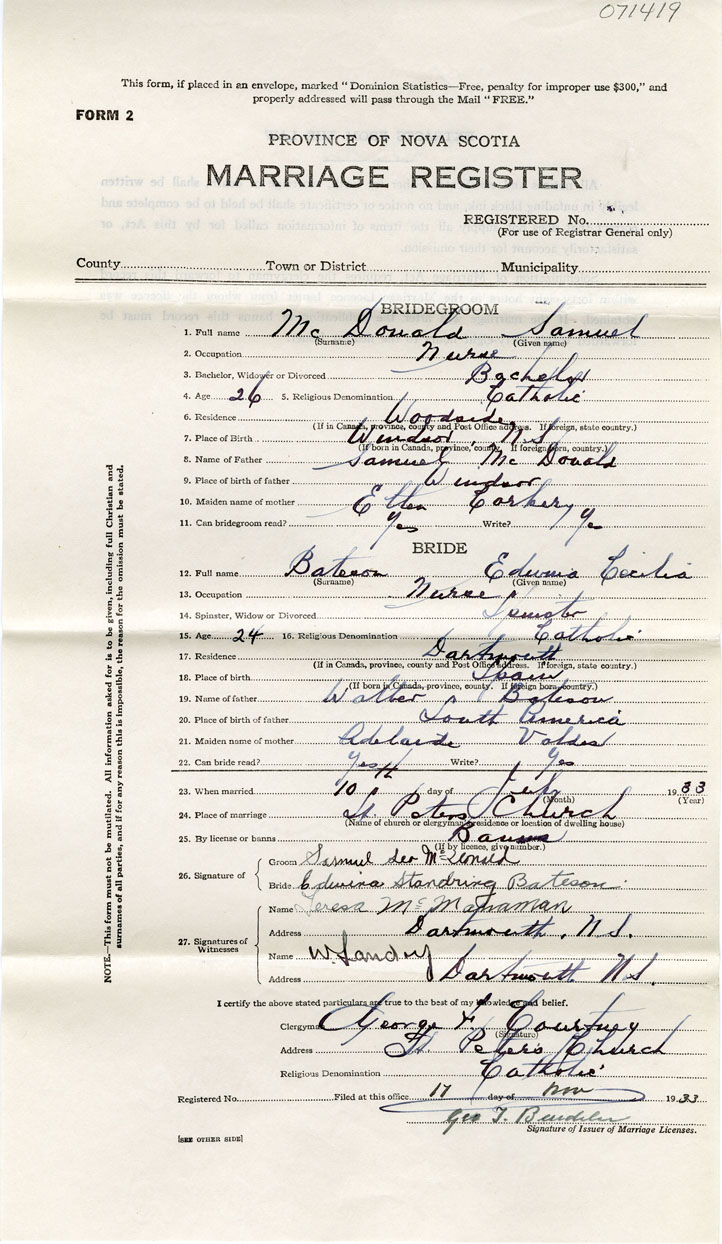 071419
This form, if placed in an envelope, marked "Dominion Statistics—Free, penalty for improper use $300," and
properly addressed will pass through the Mail "FREE."
FORM 2
PROVINCE OF NOVA SCOTIA
MARRIAGE REGISTER
REGISTERED No.
(For use of Registrar General only)
County Town or District Municipality
BRIDEGROOM
1. Full name Mc Donald Samuel
(Surname) (Given name)
2. Occupation Nurse
3. Bachelor, Widower or Divorced Bachelor
4. Age 26 5. Religious Denomination Catholic
6. Residence Woodside
(If in Canada, province, county and Post Office address. If foreign, state country.)
7. Place of Birth Windsor, N.S.
(If born in Canada, province, county. If foreign born, country.)
8. Name of Father Samuel Mc Donald
9. Place of birth of father Windsor
10. Maiden name of mother Ellen Corkery
11. Can bridegroom read? Yes Write? Yes
BRIDE
12. Full name Bateson Edwina Cecilia
(Surname) (Given name)
13. Occupation Nurse
14. Spinster, Widow or Divorced Spinster
15. Age 24 16. Religious Denomination Catholic
17. Residence Dartmouth
(If in Canada, province, county and Post Office address. If foreign, state country.)
18. Place of birth Spain
(If born in Canada, province, county. If foreign born country.)
19. Name of father Walter Bateson
20. Place of birth of father South America
21. Maiden name of mother Adelaide Valdes
22. Can bride read? Yes Write? Yes
23. When married 10th day of 1933
(Month) (Year)
24. Place of marriage St. Peters Church
(Name of church or clergyman's residence or location of dwelling house)
25. By license or banns Banns
(If by licence, give number.)
26. Signature of
Groom Samuel McDonald
Bride Edwina Standring Bateson
27. Signatures of Witnesses
Name Teresa McManaman
Address Dartmouth, N.S.
Name W. Landry
Address Dartmouth N.S.
I certify the above stated particulars are true to the best of my knowledge and belief.
Clergyman George F. Courtney
(Signature)
Address St Peter's Church
Religious Denomination Catholic
Registered No. Filed at this office 17 day of Nov 1933
Geo T.
Signature of Issuer of Marriage Licenses.
[SEE OTHER SIDE]
NOTE.—This form must not be mutilated. All information asked for is to be given, including full Christian and
surnames of all parties, and if for any reason this is impossible, the reason for the omission must be stated.